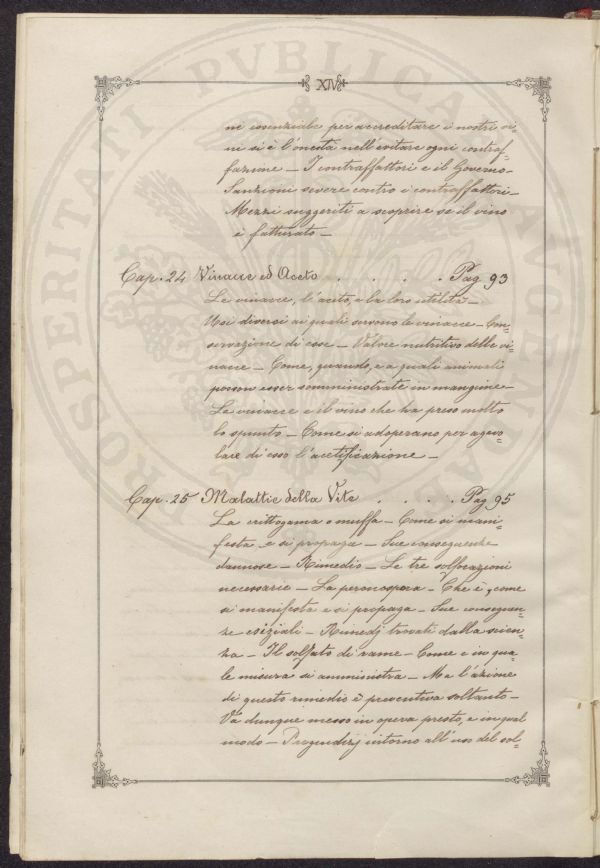 XIV
ne essenziale per accreditare i nostri vi=
ni si è l'onestà nell'evitare ogni contraf=
fazione — I contraffattori e il Governo —
Sanzioni severe contro i contraffattori —
Mezzi suggeriti a scoprire se il vino
è fatturato —
Cap. 24 Vinacce ed Aceto . . . . Pag 93
Le vinacce, l'aceto, e la loro utilità —
Usi diversi ai quali servono le vinacce — Con=
servazione di esse — Valore nutritivo delle vi=
nacce — Come, quando, e a quali animali
posson esser somministrate in mangime —
Le vinacce e il vino che ha preso molto
lo spunto — Come si adoperano per agevo=
lare di esso l'acetificazione —
Cap. 25 Malattie della Vite . . . . Pag 95
La crittogama o muffa — Come si mani=
festa e si propaga — Sue conseguenze
dannose — Rimedio — Le tre solforazioni
necessarie — La peronospora — Che è, come
si manifesta e si propaga — Sue conseguen=
ze esiziali — Rimedj trovati dalla scien=
za — Il solfato di rame — Come e in qua=
le misura si amministra — Ma l'azione
di questo rimedio è preventiva soltanto —
Va dunque messo in opera presto, e in qual
modo — Pregiudizj intorno all'uso del sol=
PROSPERITATI PVBLICAE AVGENDAE